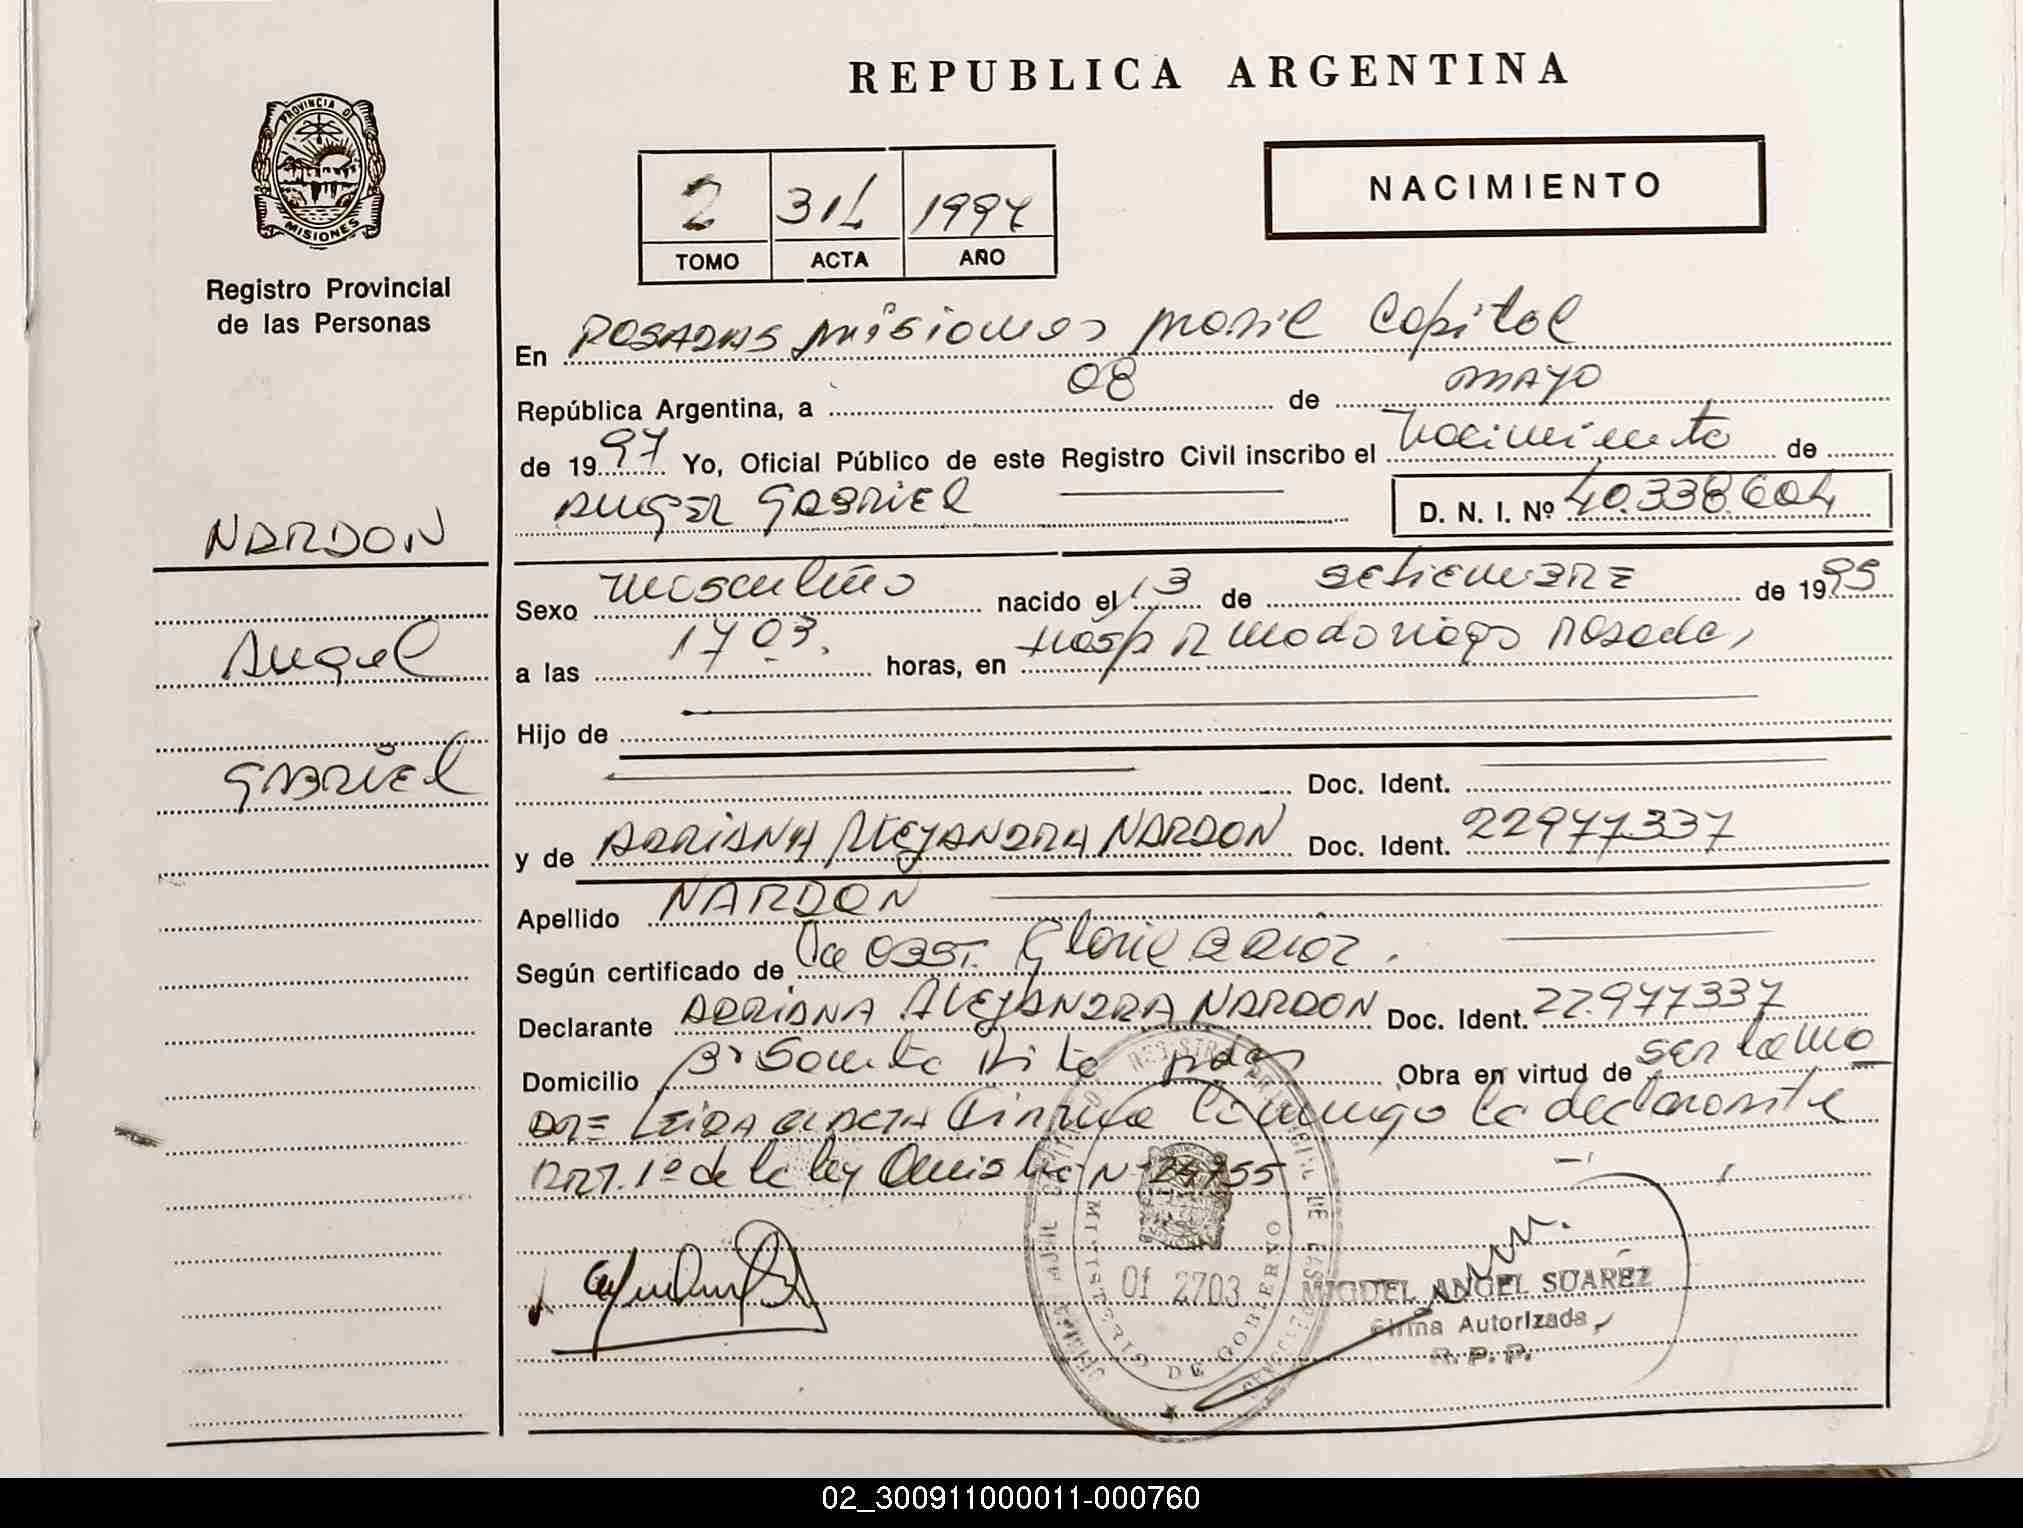 REPUBLICA ARGENTINA
PROVINCIA DE
MISIONES
Registro Provincial
de las Personas
2 314 1997
TOMO ACTA AÑO
NACIMIENTO
En POSADAS MISIONES movil Capital
República Argentina, a 08 de MAYO
de 1997 Yo, Oficial Público de este Registro Civil inscribo el Nacimiento de
ANGEL GABRIEL D. N. I. Nº 40.338.604
NARDON
Angel
GABRIEL
Sexo masculino nacido el 13 de SETIEMBRE de 1995
a las 17 03. horas, en Hosp R Madariaga Posadas
Hijo de
Doc. Ident.
y de ADRIANA ALEJANDRA NARDON Doc. Ident. 22977337
Apellido NARDON
Según certificado de La OBST. Gloria
Declarante ADRIANA ALEJANDRA NARDON Doc. Ident. 22.977337
Domicilio Bº Santa Rita pdas Obra en virtud de ser la ma
DRE LEIDA el ACTA Firma conmigo la declarante
ART. 1º de la ley Nº 24755
MINISTERIO DE GOBIERNO
Of 2703
MIGUEL ANGEL SUAREZ
Firma Autorizada
R. P. P.
02_300911000011-000760